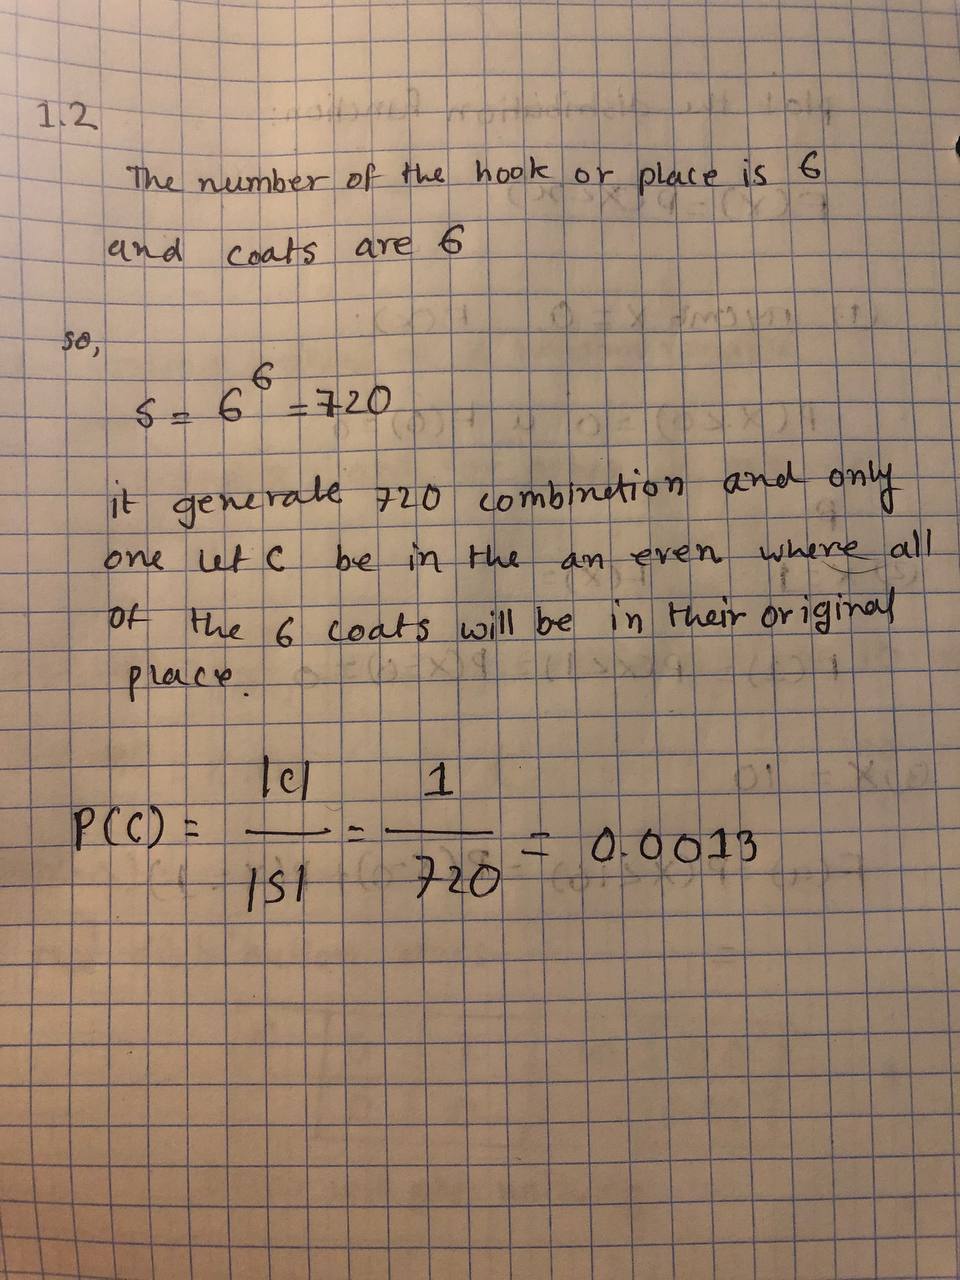 1.2
The number of the hook or place is 6
and coats are 6
so,
S = 6^6 = 720
it generate 720 combinetion and only
one let C be in the an even where all
of the 6 coats will be in their original
place.
P(C) = |C| / |S| = 1 / 720 = 0.0013